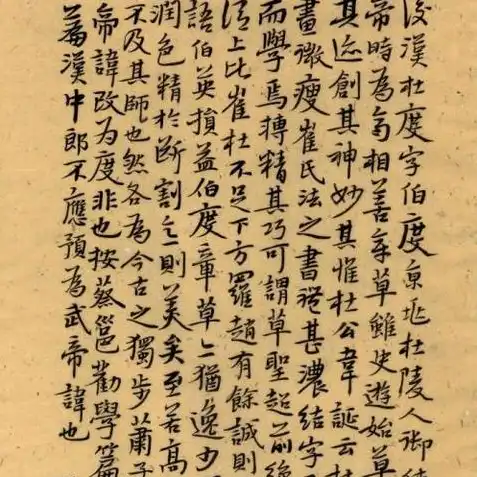 後漢杜度字伯度京兆杜陵人御
帝時為齊相善章草雖史遊始草
其迹創其神妙其惟杜公韋誕云杜
畫微瘦崔氏法之書體甚濃結字
而學焉摶精其巧可謂草聖超前絕
上比崔杜不足下方羅趙有餘誠則
語伯英損益伯度章草亦猶逸少
潤色精於斷割之則美矣至若高
不及其師也然各為今古之獨步蕭子
帝諱改為度非也按蔡邕勸學篇
蓋漢中郎不應預為武帝諱也